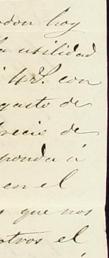 don hoy
la utilidad
á Vd. con
quito de
ecie de
ponda á
en el
s que nos
otros el